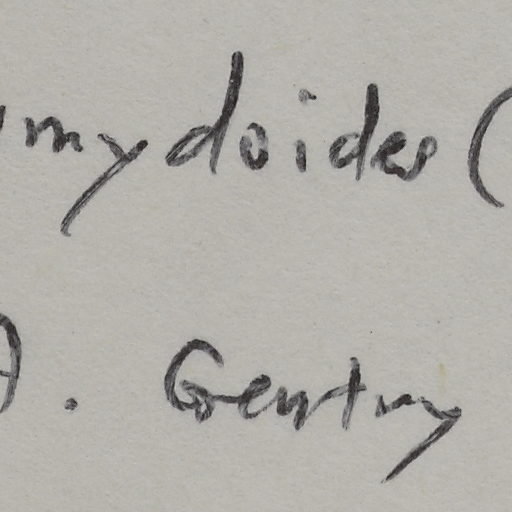 mydoides (
A. Gentry